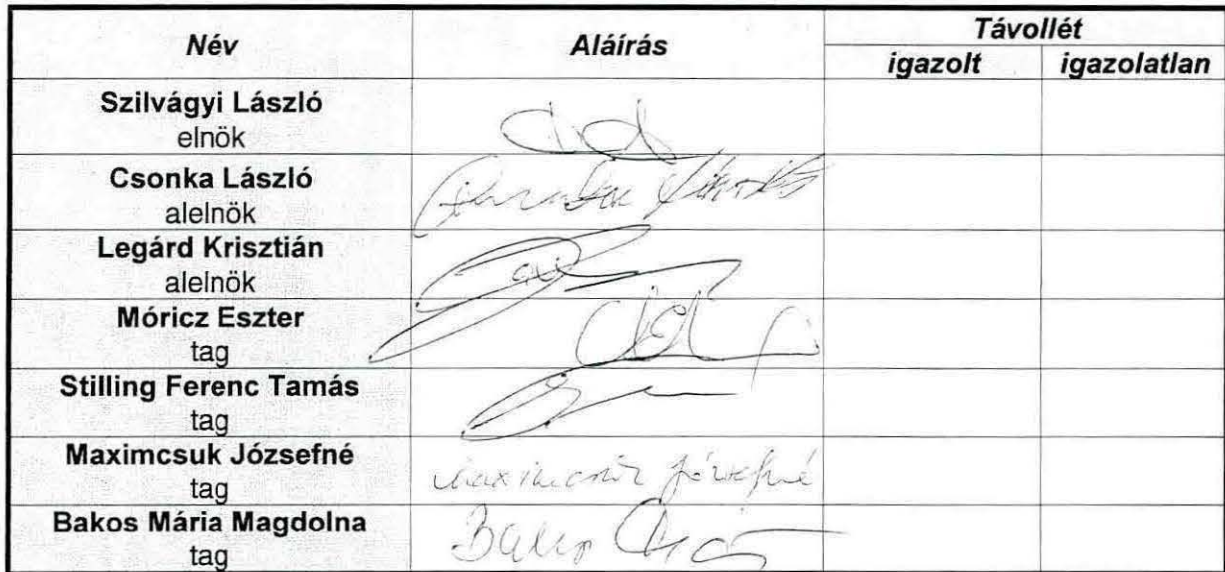 Név Aláírás Távollét
igazolt igazolatlan
Szilvágyi László
elnök
Csonka László
alelnök
Legárd Krisztián
alelnök
Móricz Eszter
tag
Stilling Ferenc Tamás
tag
Maximcsuk Józsefné Maximcsuk Józsefné
tag
Bakos Mária Magdolna
tag